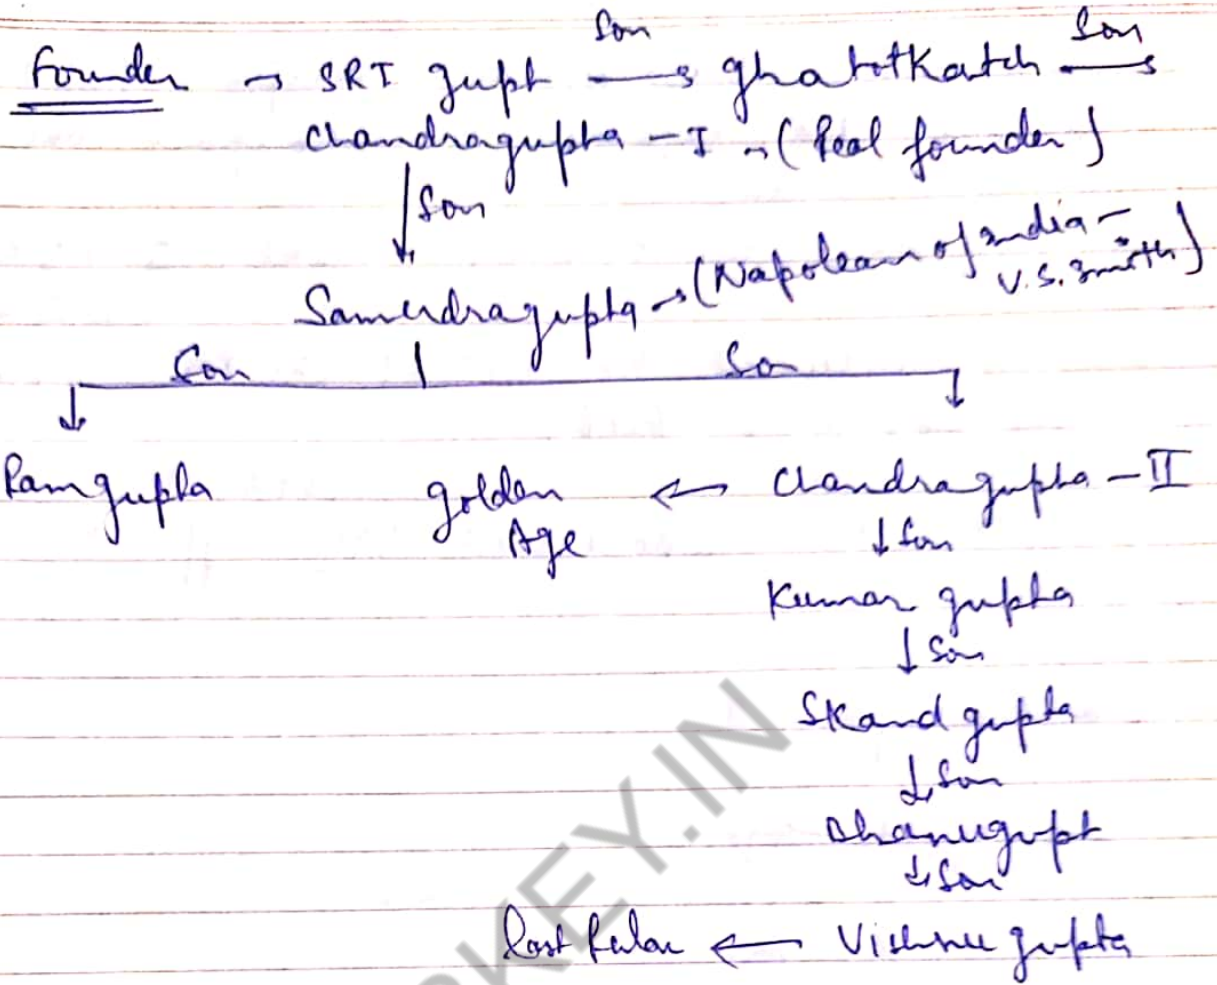 son son
Founder → SRI gupt → ghatotkatch →
chandragupta - I → (Real founder)
↓ son
Samudragupta → (Napolean of india - V.S. Smith)
son son
Ramgupta golden Age ← chandragupta - II
↓ son
Kumar gupta
↓ son
Skand gupta
↓ son
bhanugupt
↓ son
last Ruler ← Vishnu gupta
RKEY.IN